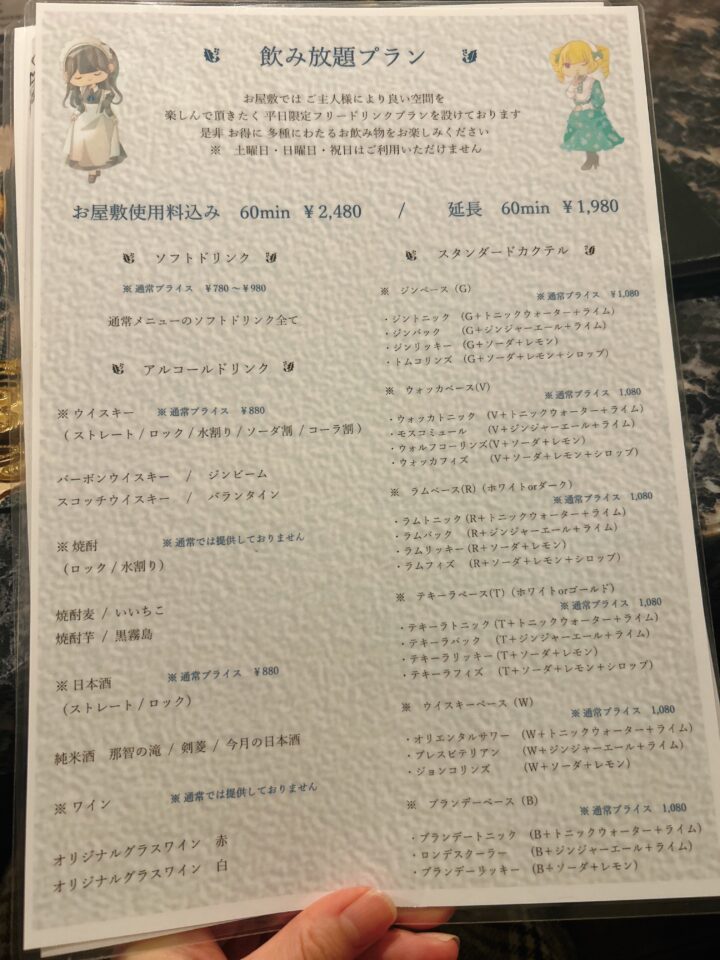 飲み放題プラン
お屋敷では ご主人様により良い空間を
楽しんで頂きたく 平日限定フリードリンクプランを設けております
是非 お得に 多種にわたるお飲み物をお楽しみください
※ 土曜日・日曜日・祝日はご利用いただけません
お屋敷使用料込み 60min ¥2,480 / 延長 60min ¥1,980
ソフトドリンク
※通常プライス ¥780～¥980
通常メニューのソフトドリンク全て
アルコールドリンク
※ウイスキー ※通常プライス ¥880
(ストレート/ロック/水割り/ソーダ割/コーラ割)
バーボンウイスキー / ジンビーム
スコッチウイスキー / バランタイン
※焼酎 ※通常では提供しておりません
(ロック/水割り)
焼酎麦 / いいちこ
焼酎芋 / 黒霧島
※日本酒 ※通常プライス ¥880
(ストレート/ロック)
純米酒 那智の滝 / 剣菱 / 今月の日本酒
※ワイン ※通常では提供しておりません
オリジナルグラスワイン 赤
オリジナルグラスワイン 白
スタンダードカクテル
※ ジンベース (G) ※通常プライス ¥1,080
・ジントニック (G+トニックウォーター+ライム)
・ジンバック (G+ジンジャーエール+ライム)
・ジンリッキー (G+ソーダ+レモン)
・トムコリンズ (G+ソーダ+レモン+シロップ)
※ ウォッカベース(V) ※通常プライス 1,080
・ウォッカトニック (V+トニックウォーター+ライム)
・モスコミュール (V+ジンジャーエール+ライム)
・ウォルフコーリンズ(V+ソーダ+レモン)
・ウォッカフィズ (V+ソーダ+レモン+シロップ)
※ ラムベース(R) (ホワイトorダーク) ※通常プライス 1,080
・ラムトニック (R+トニックウォーター+ライム)
・ラムバック (R+ジンジャーエール+ライム)
・ラムリッキー (R+ソーダ+レモン)
・ラムフィズ (R+ソーダ+レモン+シロップ)
※ テキーラベース(T) (ホワイトorゴールド) ※通常プライス 1,080
・テキーラトニック (T+トニックウォーター+ライム)
・テキーラバック (T+ジンジャーエール+ライム)
・テキーラリッキー (T+ソーダ+レモン)
・テキーラフィズ (T+ソーダ+レモン+シロップ)
※ ウイスキーベース (W) ※通常プライス 1,080
・オリエンタルサワー (W+トニックウォーター+ライム)
・プレスビテリアン (W+ジンジャーエール+ライム)
・ジョンコリンズ (W+ソーダ+レモン)
※ ブランデーベース (B) ※通常プライス 1,080
・ブランデートニック (B+トニックウォーター+ライム)
・ロンデスクーラー (B+ジンジャーエール+ライム)
・ブランデーリッキー (B+ソーダ+レモン)